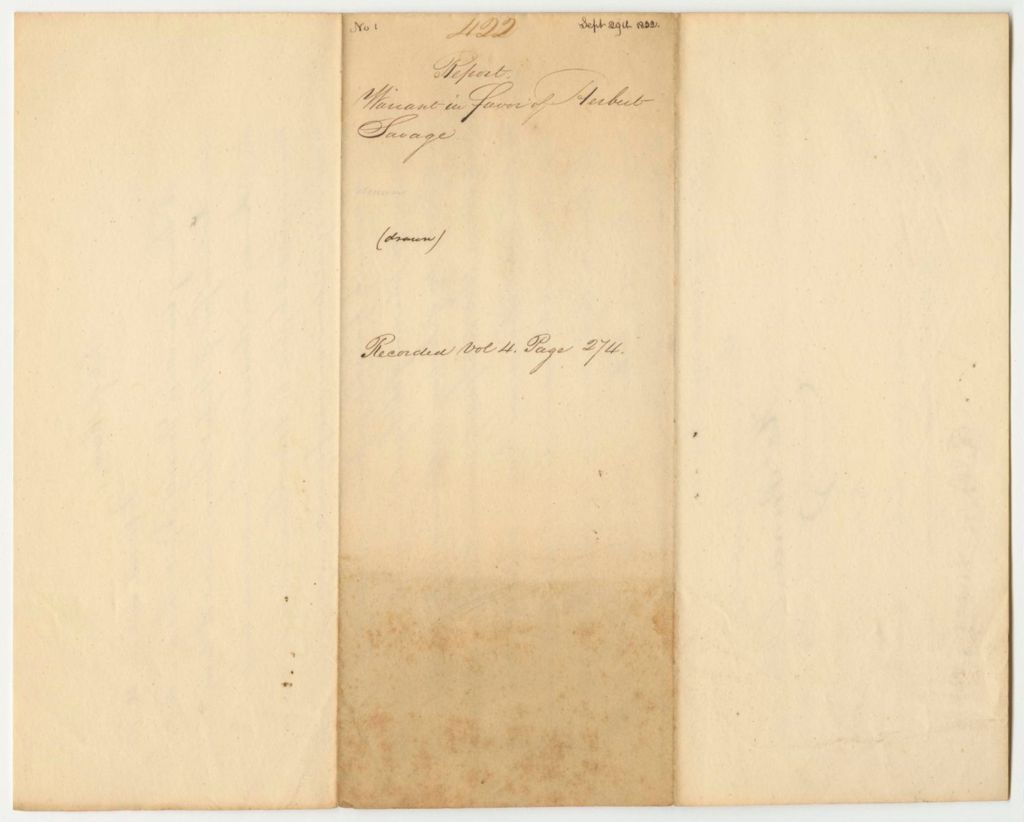 No 1
422
Sept 29th 1832.
Report.
Warrant in favor of Herbert
Savage
(drawn)
Recorded Vol 4. Page 274.